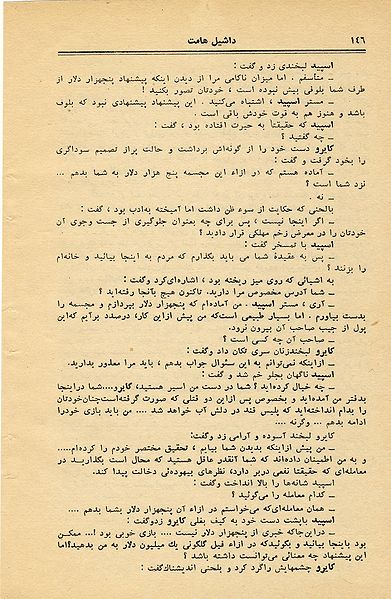 ۱۴۶
داشیل هامت
اسپید لبخندی زد و گفت :
ــ متأسفم . اما میزان ناکامی مرا از دیدن اینکه پیشنهاد پنجهزار دلار از
طرف شما بلوفی بیش نبوده است ، خودتان تصور بکنید !
ــ مستر اسپید ، اشتباه می‌کنید . این پیشنهاد پیشنهادی نبود که بلوف
باشد و هنوز هم به قوت خودش باقی است .
اسپید که حقیقتاً به حیرت افتاده بود ، گفت :
ــ چه گفتید ؟
کایرو دست خود را از گونه‌اش برداشت و حالت پراز تصمیم سوداگری
را بخود گرفت و گفت :
ــ آماده هستم که در ازاء این مجسمه پنج هزار دلار به شما بدهم ...
نزد شما است ؟
ــ نه .
بالحنی که حکایت از سوء ظن داشت اما آمیخته به‌ادب بود ، گفت :
ــ اگر اینجا نیست ، پس برای چه بعنوان جلوگیری از جست وجوی آن
خودتان را در معرض زخم مهلکی قرار دادید ؟
اسپید با تمسخر گفت :
ــ پس به عقیدهٔ شما می باید بگذارم که مردم به اینجا بیائید و خانه‌ام
را بزنند ؟
به اشیائی که روی میز ریخته بود ، اشاره‌ای‌کرد وگفت :
ــ شما آدرس مخصوص مرا دارید. تاکنون هیچ بآنجا رفته‌اید ؟
ــ آری ، مستر اسپید . من آماده‌ام که پنجهزار دلار بپردازم و مجسمه را
بدست بیاورم . اما بسیار طبیعی‌است‌که من پیش ازاین کار، درصدد برآیم که‌این
پول از جیب صاحب آن بیرون نرود.
ــ صاحب آن چه کسی است ؟
کایرو لبخندزنان سری تکان داد وگفت:
ــ ازاینکه نمی‌توانم به این سئوال جواب بدهم ، باید مرا معذور بدارید.
اسپید ناگهان بجلو خم شد و گفت :
ــ چه خیال کرده‌اید ؟ شما در دست من اسیر هستید، کایرو....شما دراینجا
بدفتر من آمده‌اید و بخصوص پس ازاین دو قتلی که صورت گرفته‌است‌چنان‌خودتان
را بدام انداخته‌اید که پلیس قند در دلش آب خواهد شد .... من باید بازی خودرا
ادامه بدهم ... وگرنه ....
کایرو لبخند آسوده و آرامی زد وگفت:
ــ من پیش ازاینکه بدیدن شما بیایم ، تحقیق مختصر خودم را کرده‌ام.....
و به من اطمینان داده‌اند که شما آنقدر عاقل هستید که محال است بگذارید در
معامله‌ای که حقیقتا نفعی دربر دارد، نظرهای بیهوده‌ئی دخالت پیدا کند.
اسپید شانه‌ها را بالا انداخت وگفت:
ــ کدام معامله را می‌گوئید ؟
ــ همان معامله‌ای که‌می‌خواستم در ازاء آن پنجهزار دلار بشما بدهم ....
اسپید باپشت دست خود به کیف بغلی کایرو زدوگفت:
ــ دراین‌جاکه خبری از پنجهزار دلار نیست .... بازی خوبی بود !... ممکن
بود باینجا بیائید و بگوئیدکه در ازاء فیل گلگونی یك میلیون دلار به من بدهید؟اما
این پیشنهاد چه معنائی می‌توانست داشته باشد ؟
کایرو چشمهایش راگرد کرد و بلحنی اندیشناك‌گفت: